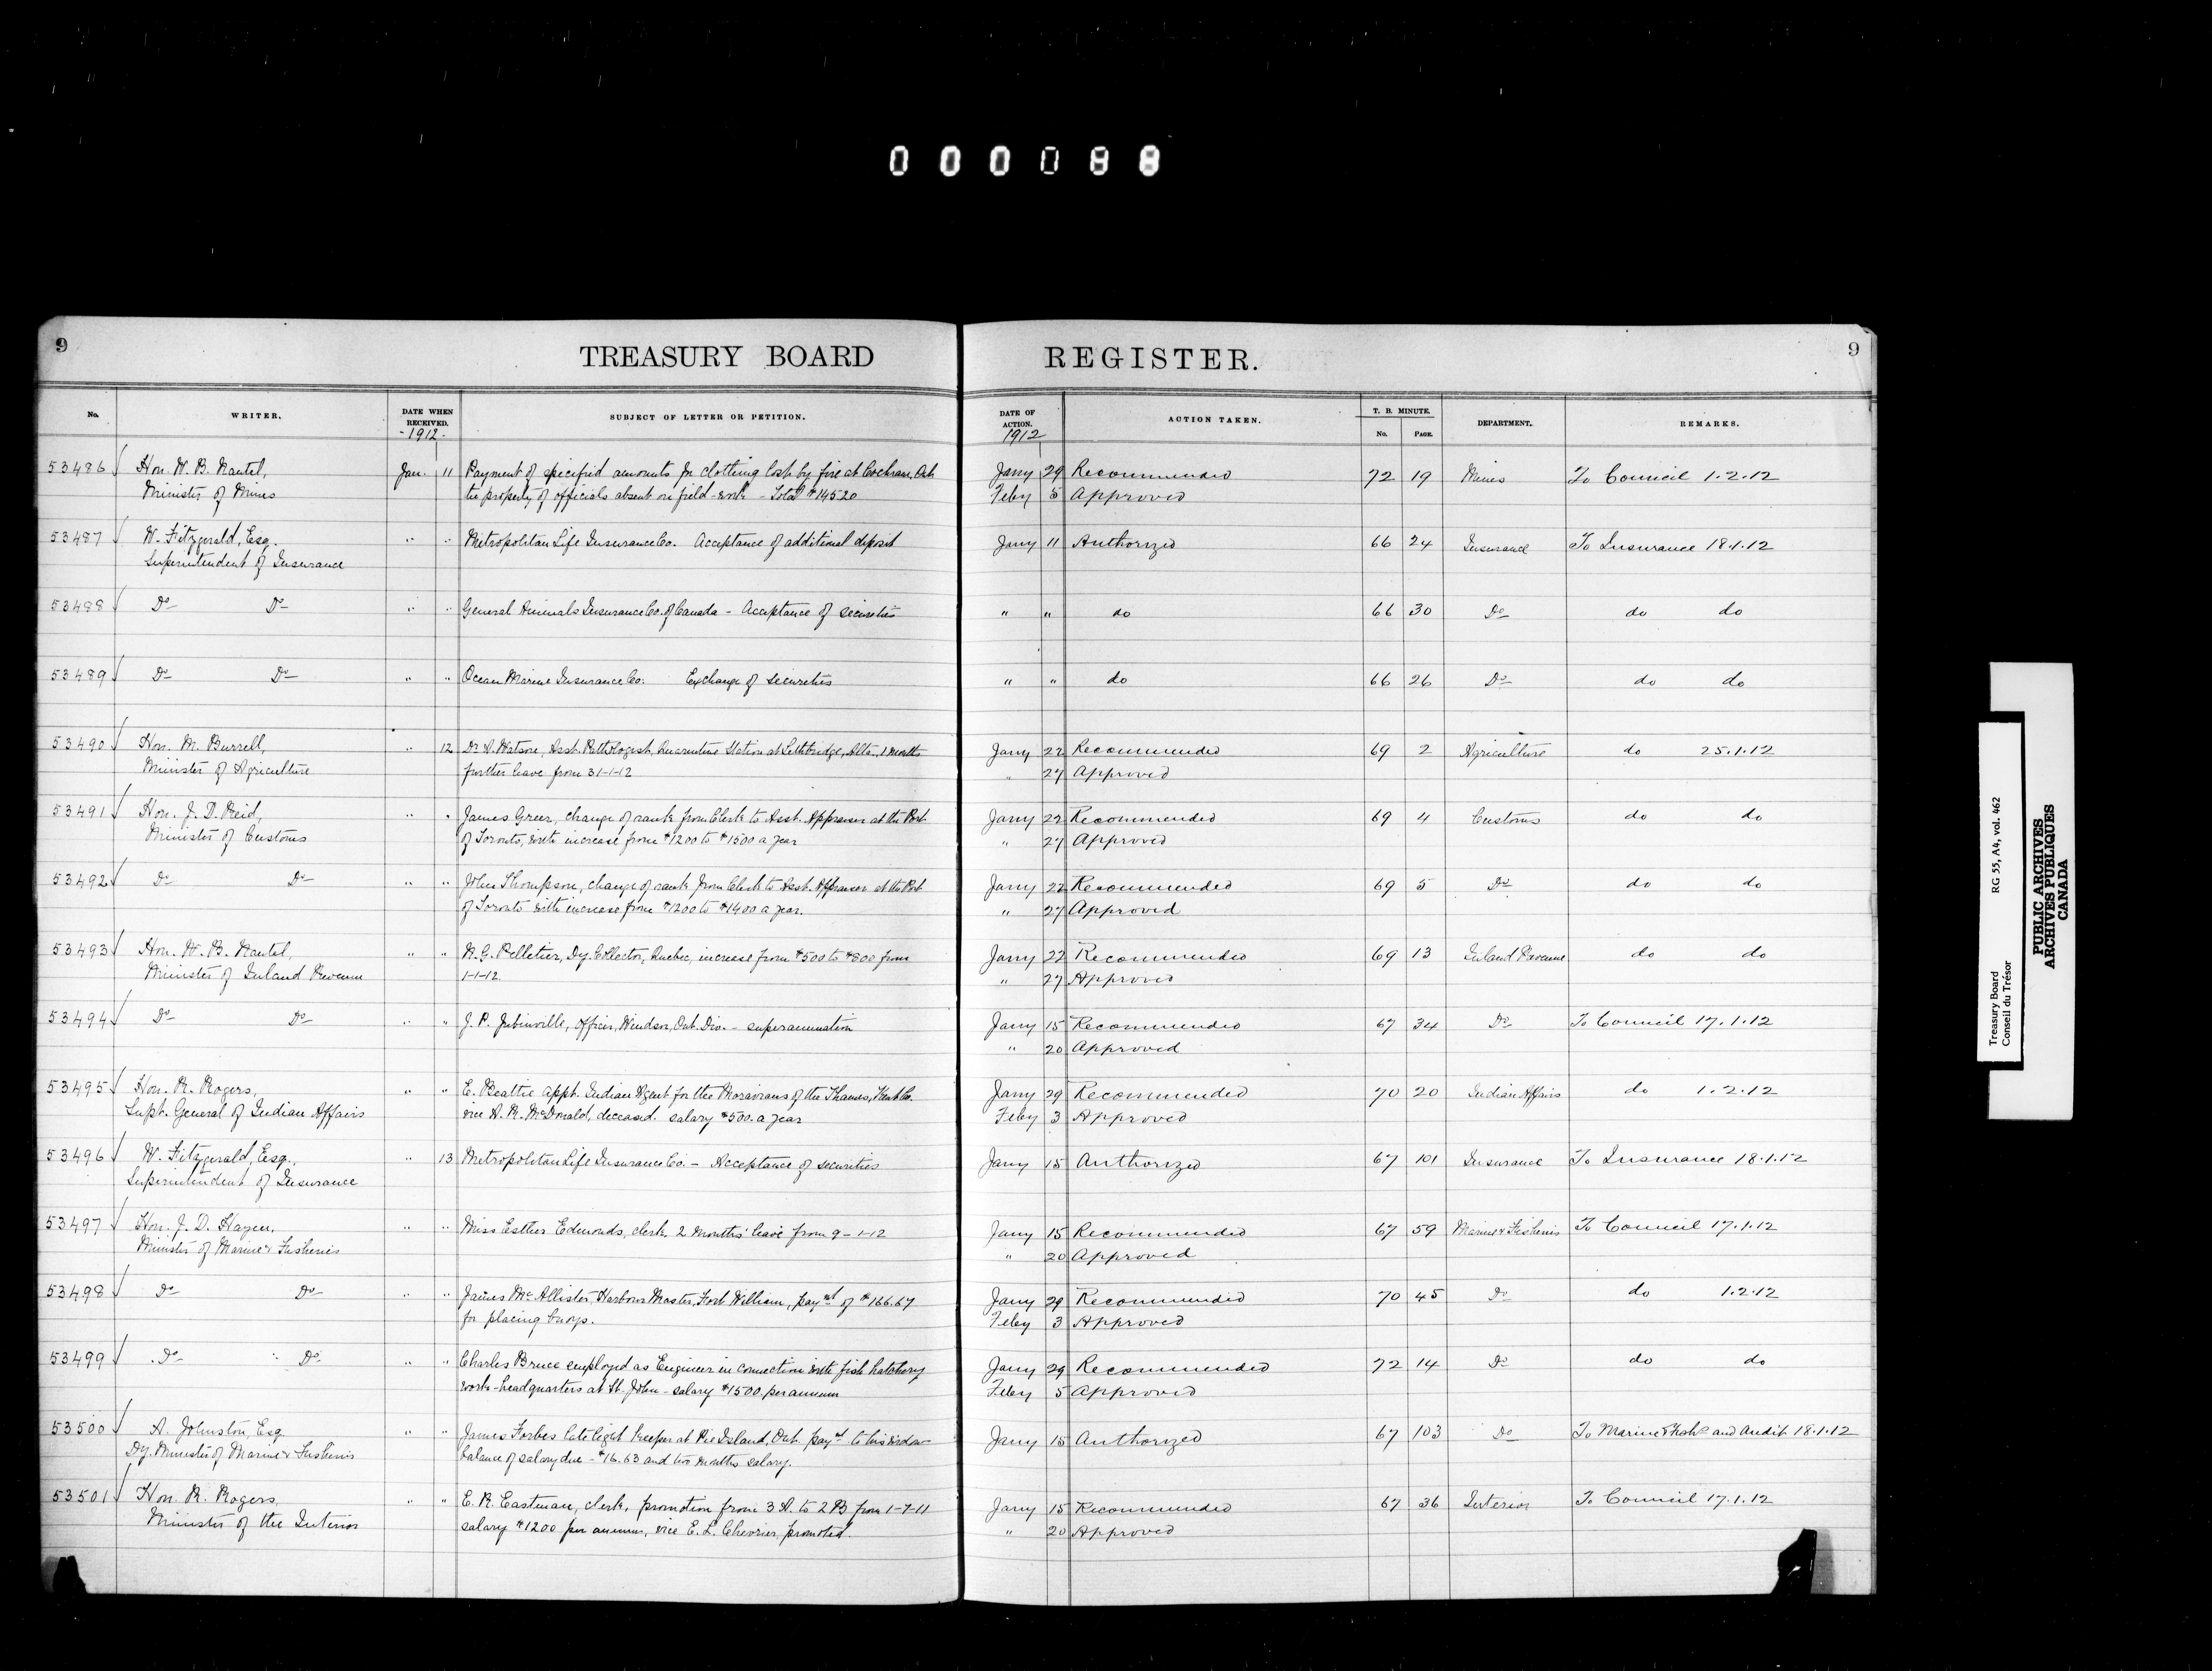 0 0 0 0 8 8
9 TREASURY BOARD REGISTER. 9
No. WRITER. DATE WHEN RECEIVED. SUBJECT OF LETTER OR PETITION. DATE OF ACTION. ACTION TAKEN. T. B. MINUTE. No. PAGE. DEPARTMENT. REMARKS.
-1912- 1912
53486 Hon. W. B. Nantel, Jan. 11 Payment of specified amounts for clothing lost by fire at Cochrane, Ont. Jany 29 Recommended 72 19 Mines To Council 1.2.12
Minister of Mines the property of officials absent on field-work - Total $145.20 Feby 5 Approved
53487 W. Fitzgerald, Esq. " " Metropolitan Life Insurance Co. Acceptance of additional deposit Jany 11 Authorized 66 24 Insurance To Insurance 18.1.12
Superintendent of Insurance
53488 Do Do " " General Animals Insurance Co. of Canada - Acceptance of securities " " do 66 30 Do do do
53489 Do Do " " Ocean Marine Insurance Co. Exchange of securities " " do 66 26 Do do do
53490 Hon. M. Burrell, " 12 Dr. A. Watson, Asst. Pathologist, Quarantine Station at Lethbridge, Alta., months Jany 22 Recommended 69 2 Agriculture do 25.1.12
Minister of Agriculture further leave from 31-1-12 " 27 Approved
53491 Hon. J. D. Reid, " " James Greer, change of rank from Clerk to Asst. Appraiser at the Port Jany 22 Recommended 69 4 Customs do do
Minister of Customs of Toronto, with increase from $1200 to $1500 a year " 27 Approved
53492 Do Do " " John Thompson, change of rank from Clerk to Asst. Appraiser at the Port Jany 22 Recommended 69 5 Do do do
of Toronto with increase from $1200 to $1400 a year. " 27 Approved
53493 Hon. W. B. Nantel, " " N. G. Pelletier, Dy. Collector, Quebec, increase from $500 to $800 from Jany 22 Recommended 69 13 Inland Revenue do do
Minister of Inland Revenue 1-1-12. " 27 Approved
53494 Do Do " " J. P. Jubinville, Officer, Windsor, Ont. Div. - superannuation Jany 15 Recommended 67 34 Do To Council 17.1.12
" 20 Approved
53495 Hon. R. Rogers, " " E. Beattie appt. Indian Agent for the Moravians of the Thames, Kent Co. Jany 29 Recommended 70 20 Indian Affairs do 1.2.12
Supt. General of Indian Affairs vice A. R. McDonald, deceased. salary $500. a year Feby 3 Approved
53496 W. Fitzgerald, Esq., " 13 Metropolitan Life Insurance Co. - Acceptance of securities Jany 15 Authorized 67 101 Insurance To Insurance 18.1.12
Superintendent of Insurance
53497 Hon. J. D. Hazen, " " Miss Esther Edmonds, clerk. 2 months' leave from 9-1-12 Jany 15 Recommended 67 59 Marine & Fisheries To Council 17.1.12
Minister of Marine & Fisheries " 20 Approved
53498 Do Do " " James McAllister, Harbour Master, Fort William, paymt of $166.67 Jany 29 Recommended 70 45 Do do 1.2.12
for placing buoys. Feby 3 Approved
53499 Do Do " " Charles Bruce employed as Engineer in connection with fish hatchery Jany 29 Recommended 72 14 Do do do
work - headquarters at St. John - salary $1500. per annum Feby 5 Approved
53500 A. Johnston, Esq. " " James Forbes late light keeper at Pie Island, Ont. paymt to his widow Jany 15 Authorized 67 103 Do To Marine & Fish and Audit 18.1.12
Dy. Minister of Marine & Fisheries balance of salary due - $16.63 and two months salary.
53501 Hon. R. Rogers, " " E. R. Eastman, clerk, promotion from 3 A. to 2 B from 1-7-11 Jany 15 Recommended 67 36 Interior To Council 17.1.12
Minister of the Interior salary $1200 per annum, vice E. L. Chevrier, promoted. " 20 Approved
Treasury Board RG 55, A4, vol. 462
Conseil du Trésor
PUBLIC ARCHIVES
ARCHIVES PUBLIQUES
CANADA